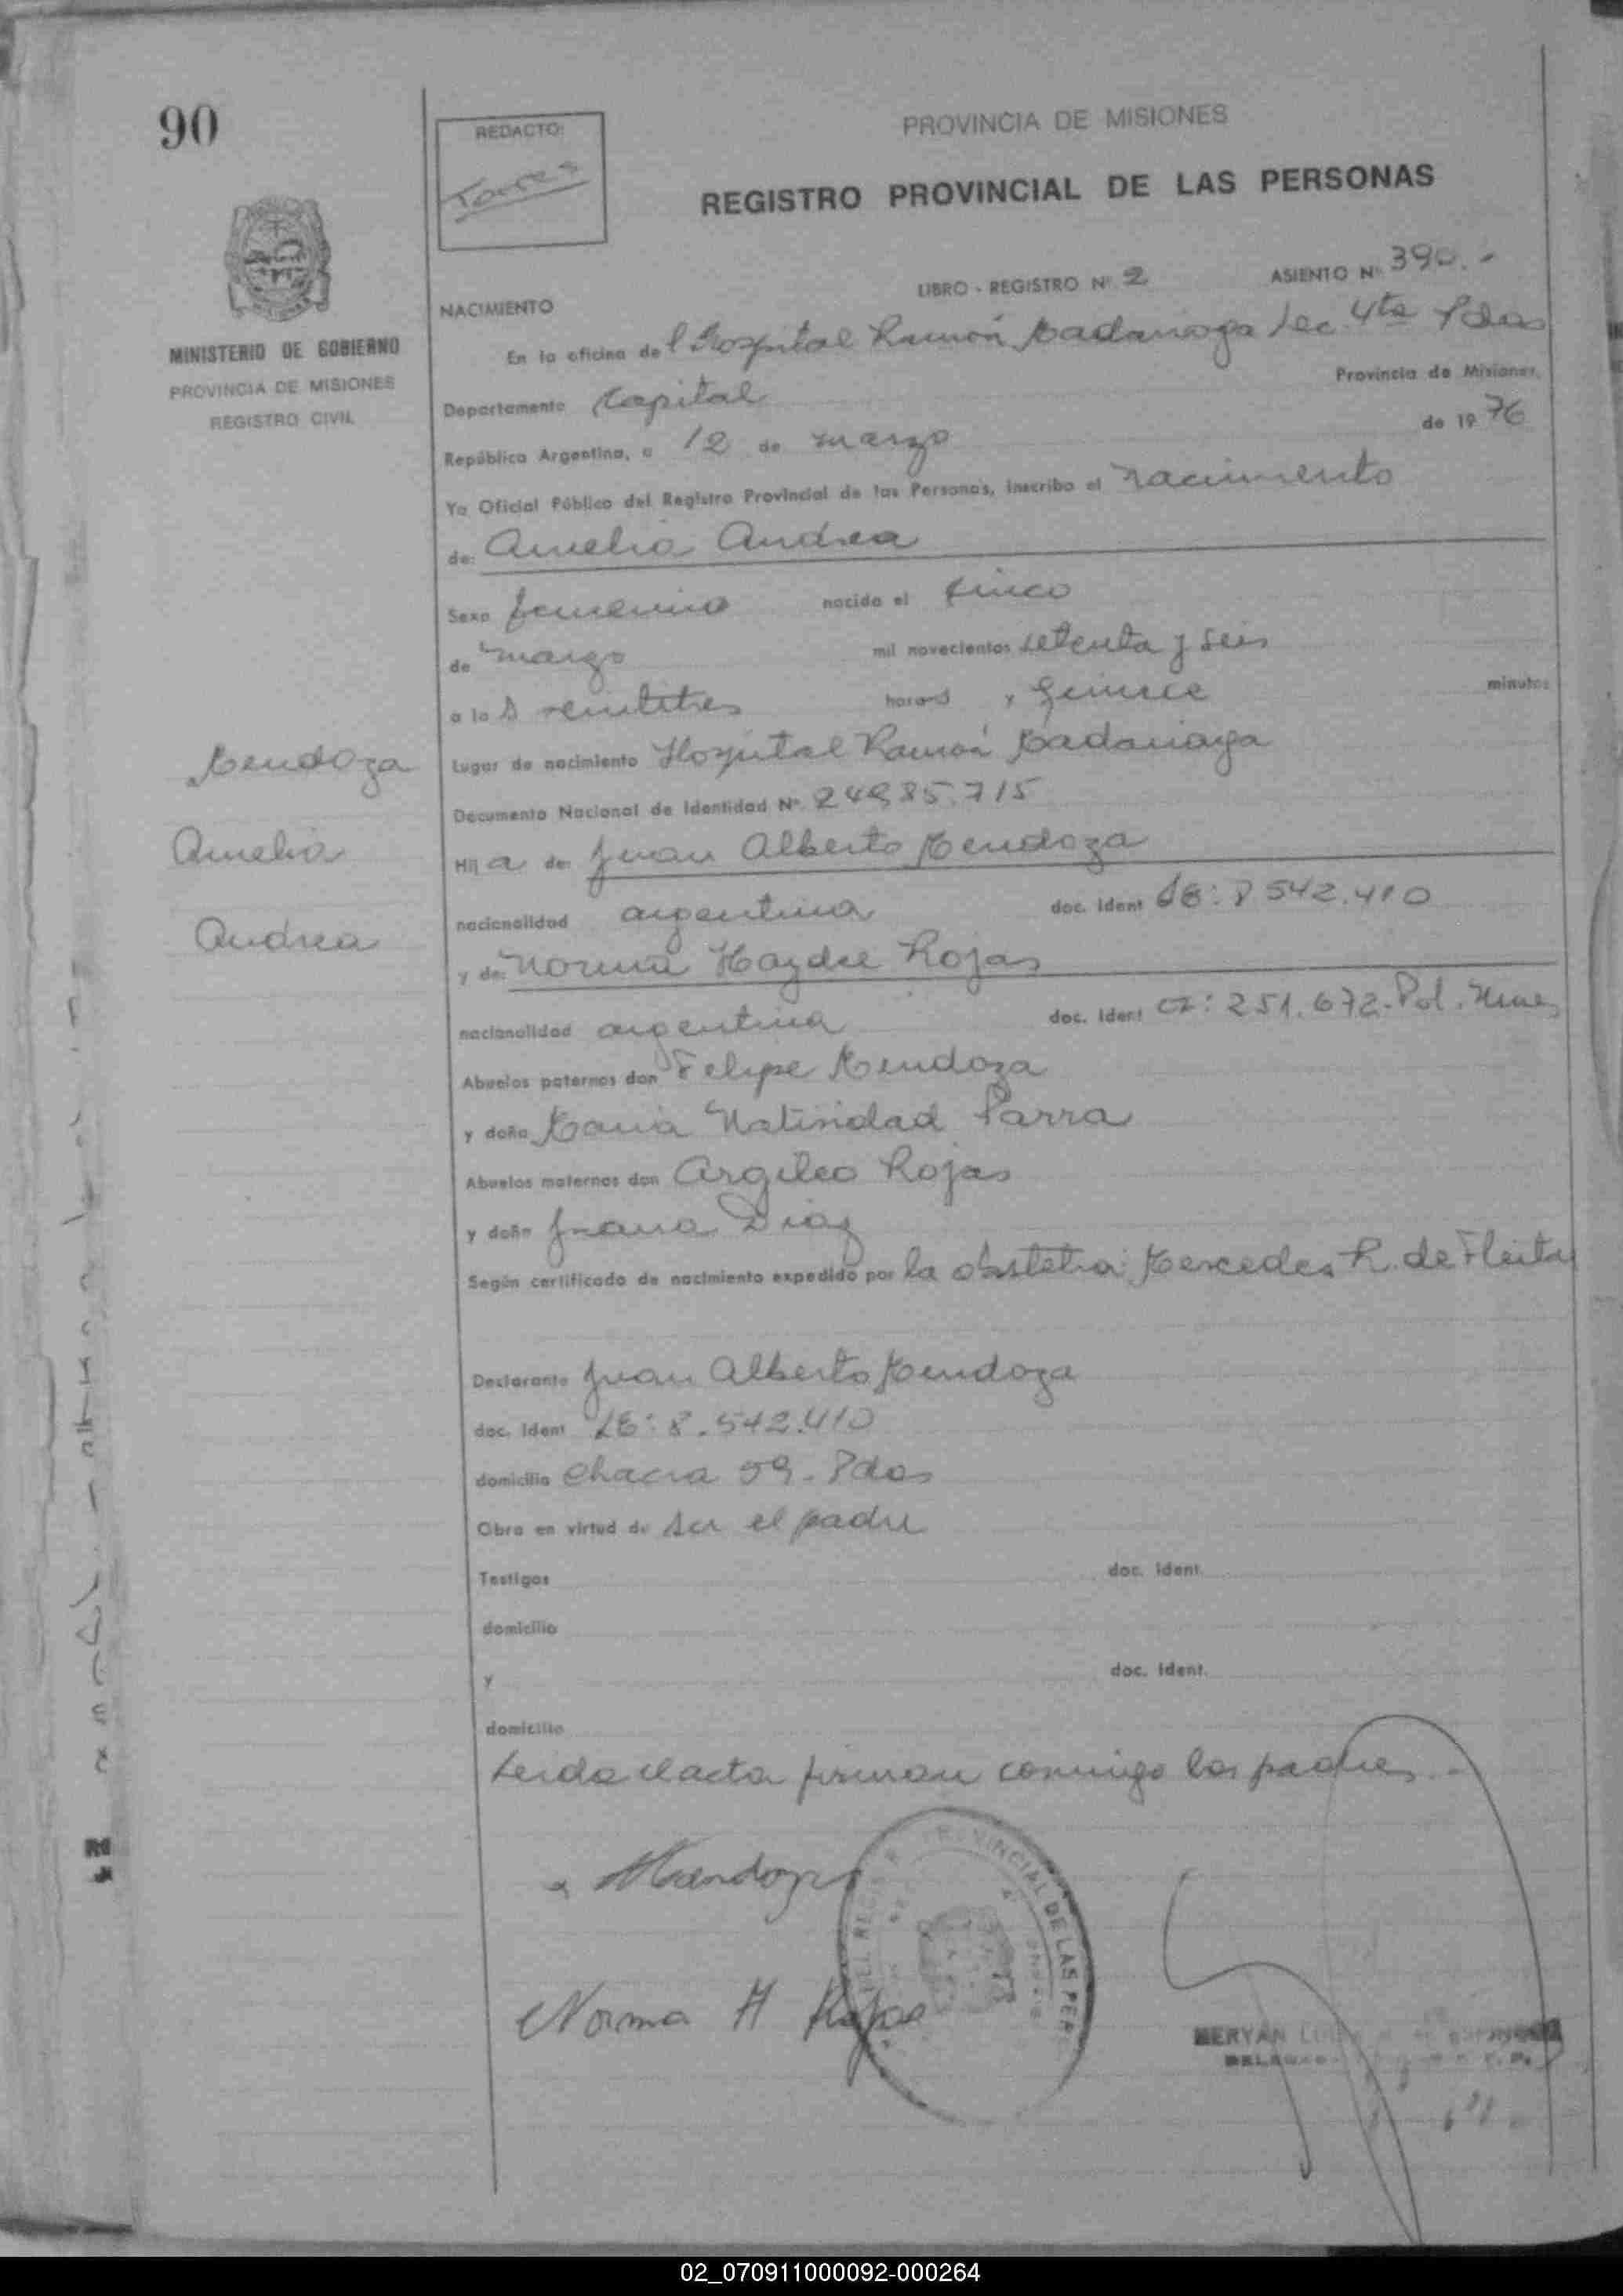 90
REDACTO:
Torres
PROVINCIA DE MISIONES
REGISTRO PROVINCIAL DE LAS PERSONAS
MINISTERIO DE GOBIERNO
PROVINCIA DE MISIONES
REGISTRO CIVIL
LIBRO - REGISTRO Nº 2 ASIENTO Nº 390.-
NACIMIENTO
En la oficina del Hospital Ramón Madariaga Sec. 4ta Pdas
Departamento Capital Provincia de Misiones,
República Argentina, a 12 de marzo de 1976
Yo Oficial Público del Registro Provincial de las Personas, inscribo el nacimiento
de: Amelia Andrea
Sexo femenino nacido el cinco
de marzo mil novecientos setenta y seis
a las veintitres horas y quince minutos
Lugar de nacimiento Hospital Ramón Madariaga
Documento Nacional de Identidad Nº 24985.715
Hija de: Juan Alberto Mendoza
nacionalidad argentina doc. ident LE: 8542.410
y de: Norma Haydee Rojas
nacionalidad argentina doc. ident CI: 251.672-Pol. Mnes
Abuelos paternos don Felipe Mendoza
y doña Maria Natividad Parra
Abuelos maternos don Argileo Rojas
y doña Juana Diaz
Según certificado de nacimiento expedido por la obstetra: Mercedes R. de Fleitas
Mendoza
Amelia
Andrea
Declarante Juan Alberto Mendoza
doc. ident LE: 8.542.410
domicilio Chacra 59 - Pdas
Obra en virtud de ser el padre
Testigos doc. ident.
domicilio
y doc. ident.
domicilio
Leida el acta firman conmigo los padres.-
Mendoza
PROVINCIAL DE LAS PER
Norma H Rojas
MERYAN
02_070911000092-000264